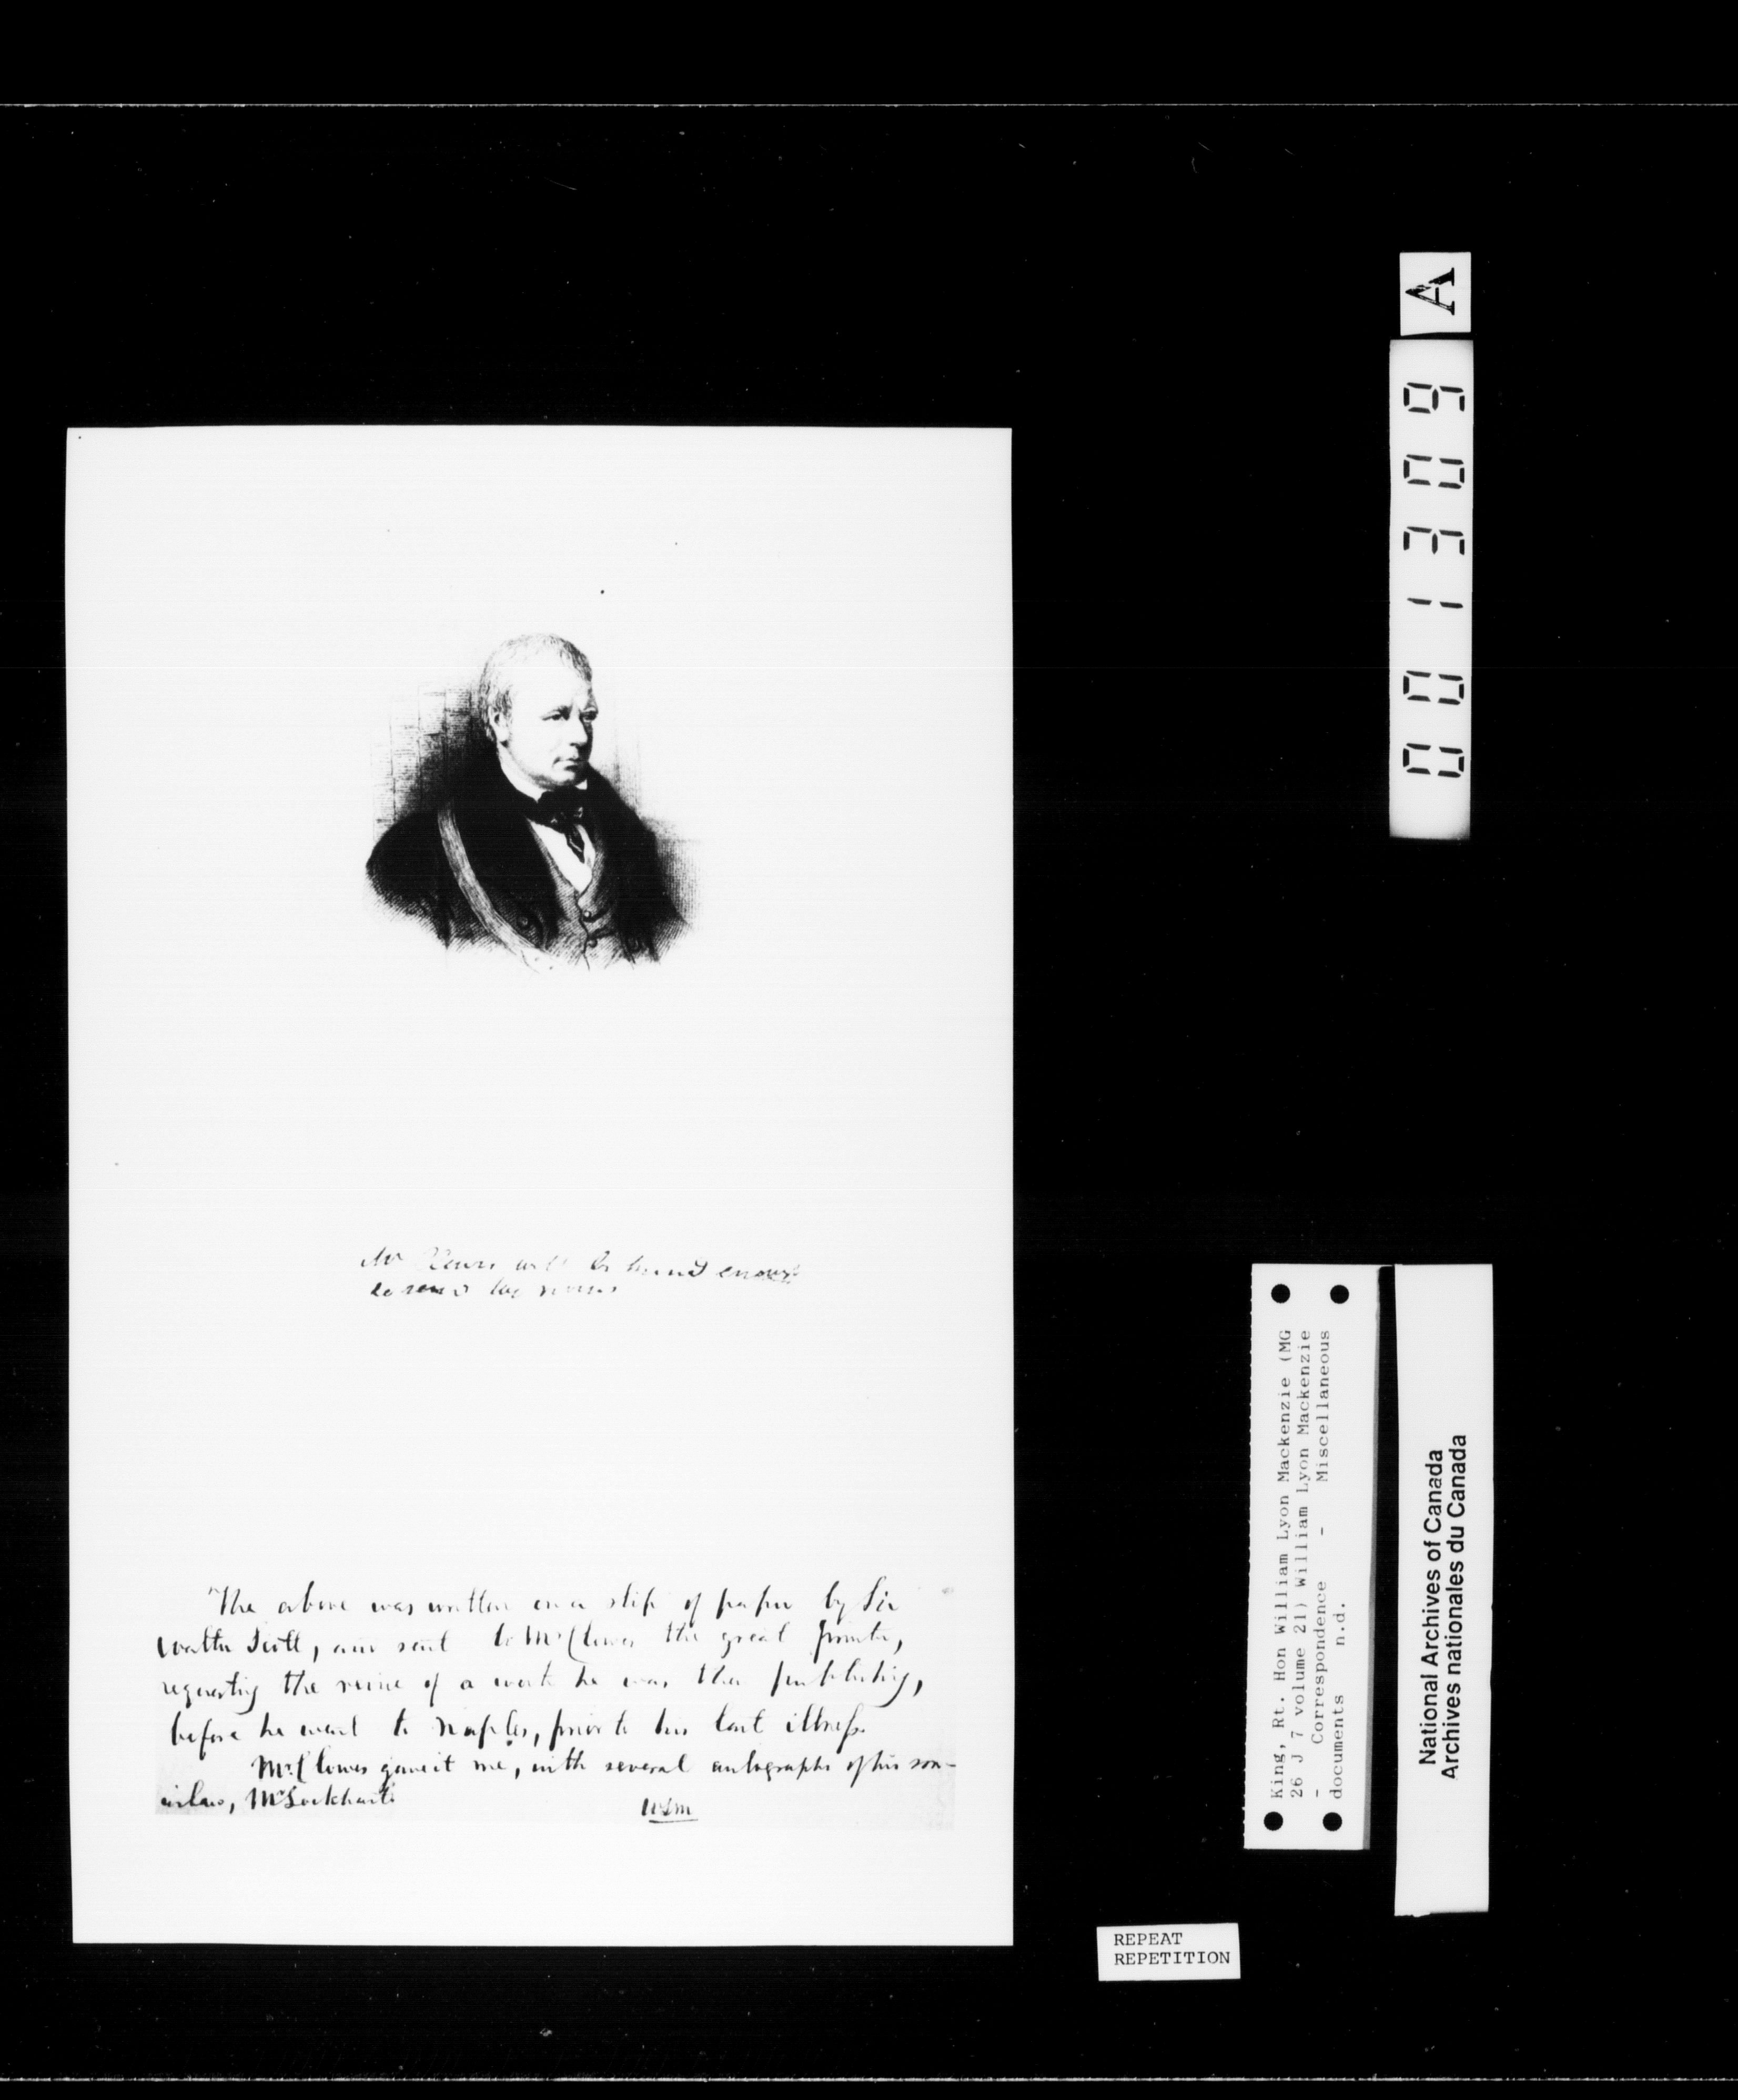 Mr Clowes will be kind enough
to send the revise
"The above was written on a slip of paper by Sir
Walter Scott, and sent to Mr Clowes the great printer,
requesting the revise of a work he was then publishing,
before he went to Naples, prior to his last illness.
Mr. Clowes gave it me, with several autographs of his son-
in law, Mr Lockhart.
WLM
A
001309
King, Rt. Hon William Lyon Mackenzie (MG
26 J 7 volume 21) William Lyon Mackenzie
- Correspondence - Miscellaneous
documents n.d.
National Archives of Canada
Archives nationales du Canada
REPEAT
REPETITION